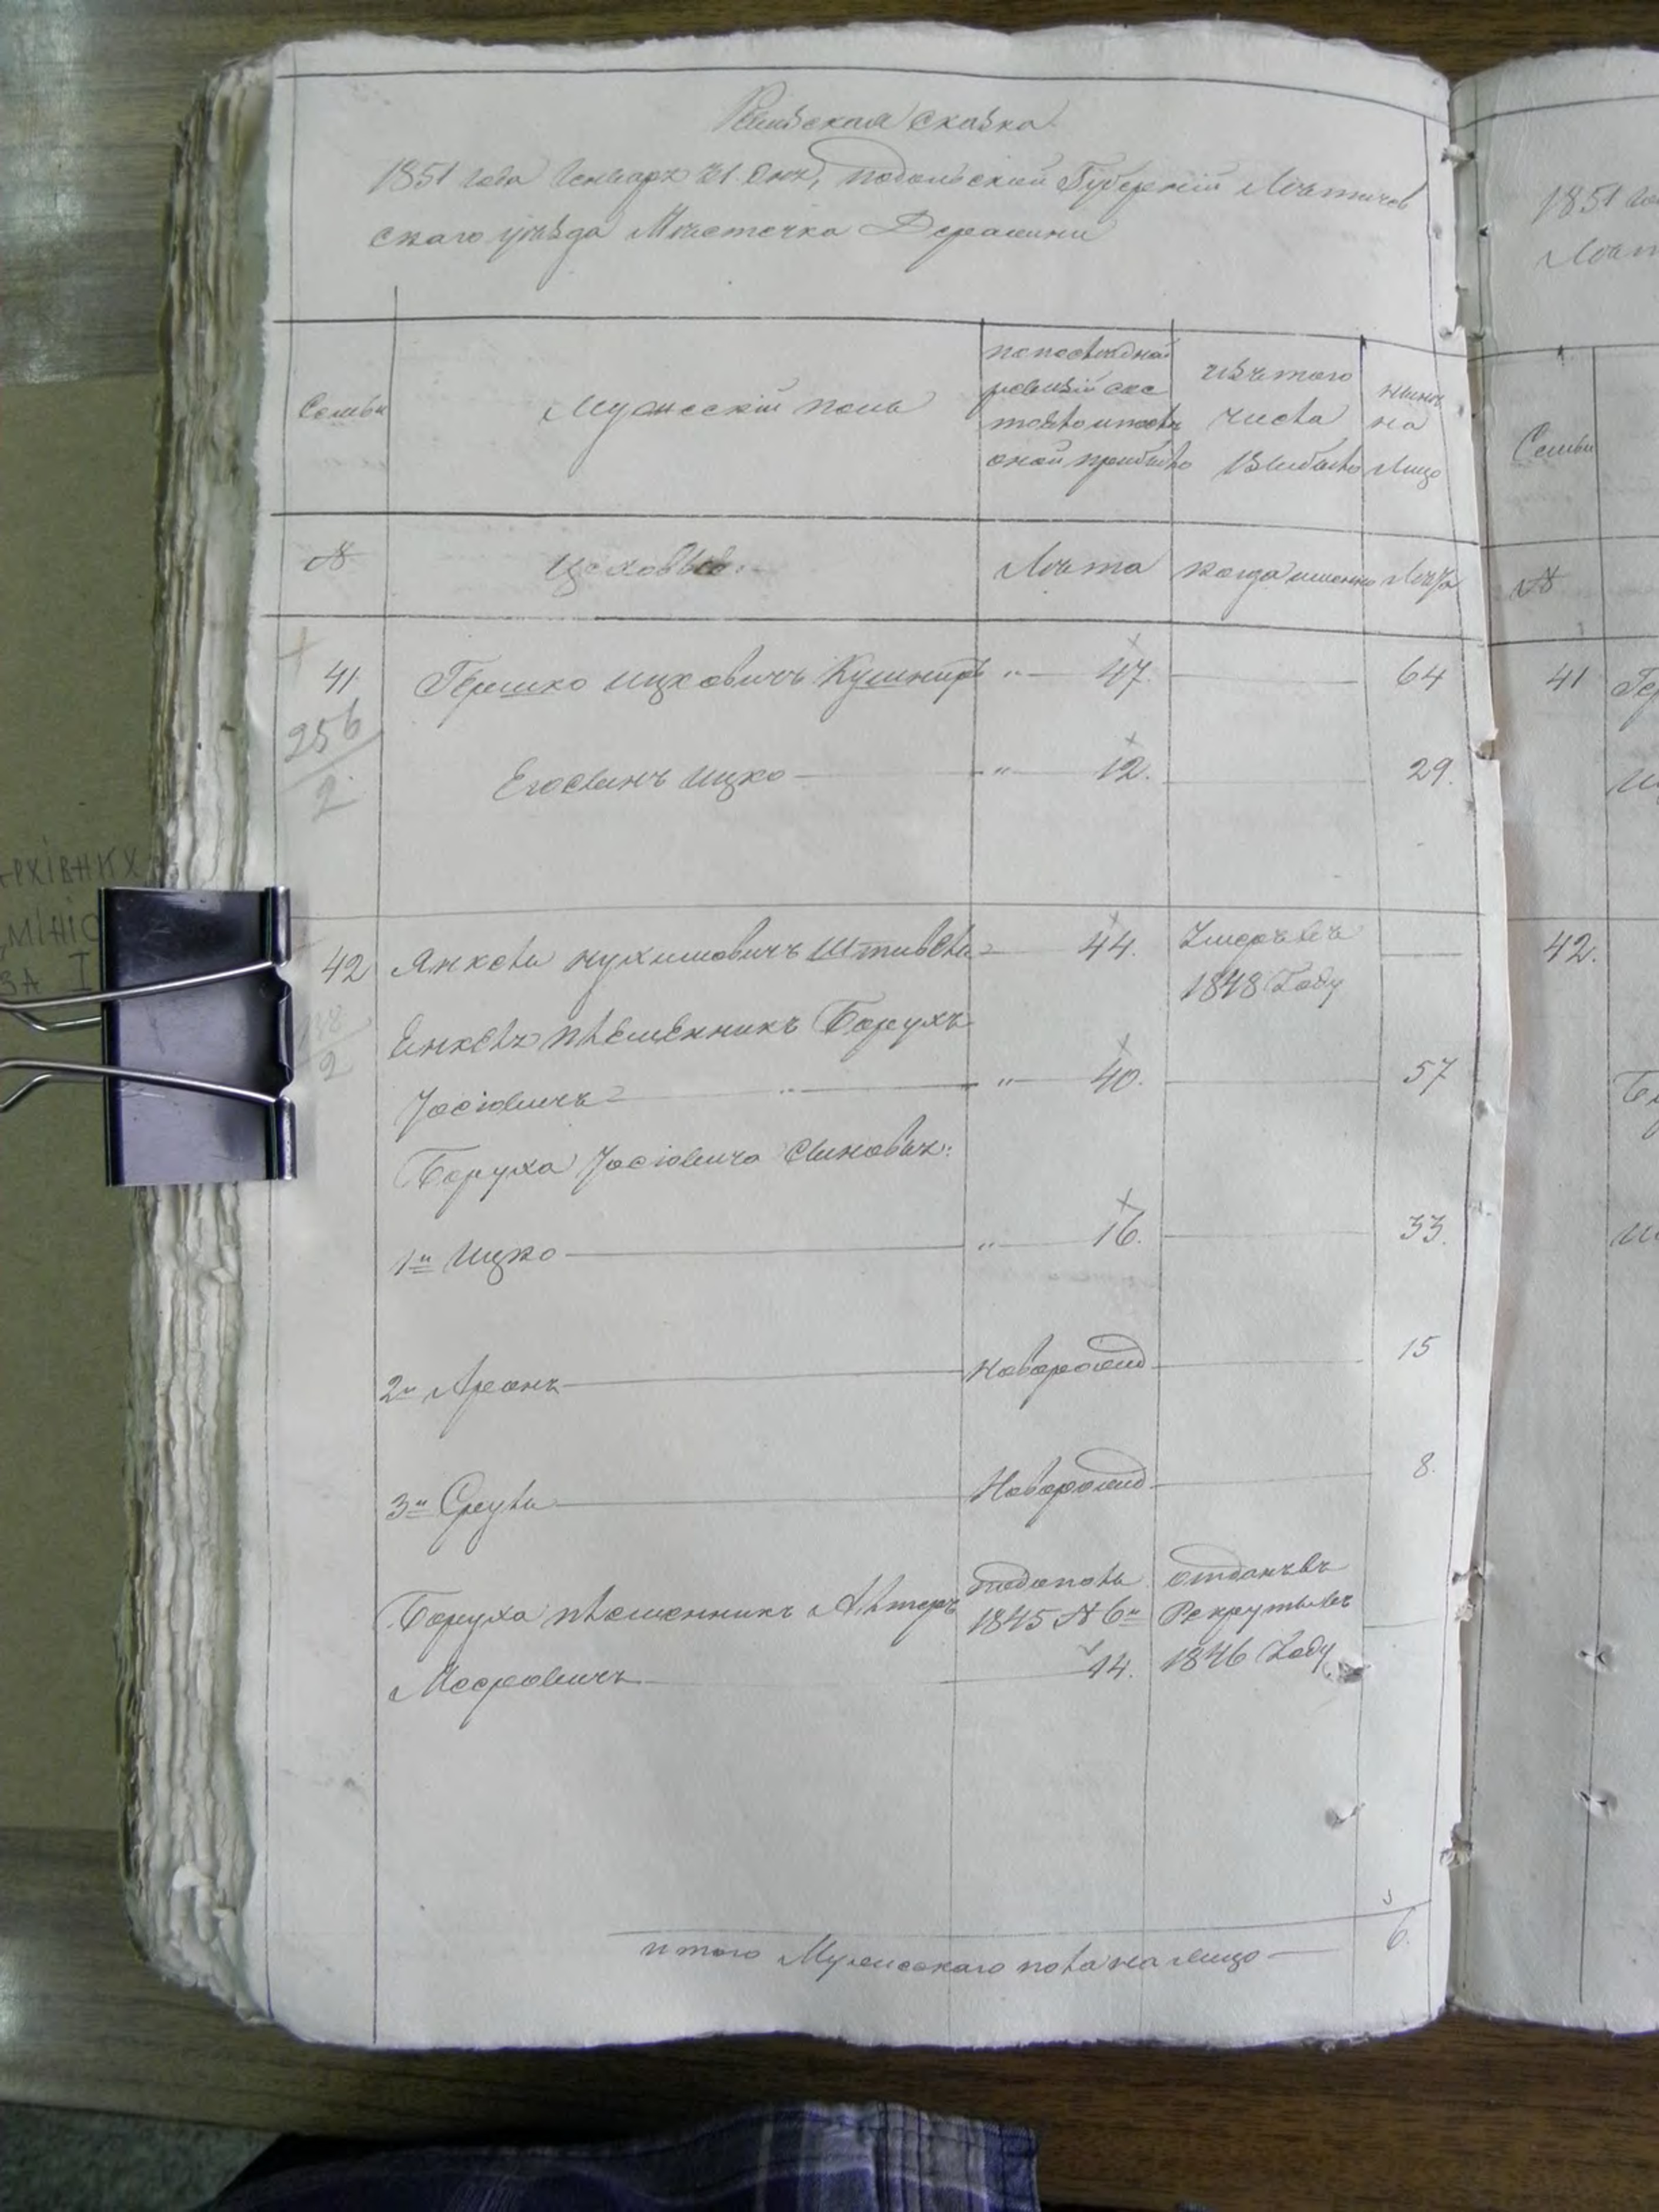 Ревизская сказка
1851 года Генваря 21. дня, Подольской Губернии Летичев
скаго уезда Местечка Деражни
Семьи
Мужеский полъ
по последней
ревизии сос
тояло и после
оной прибыло
изъ того
числа
выбыло
ныне
на
лицо
№
Цеховые:
Лета
когда именно
Лета
41
Гершко Ицковичъ Кушниръ " 47. 64
256
2
Его сынъ Ицко " 12. 29.
42
Янкель Нухимовичъ Штивель 44. Умеръ въ
1848 Году
2
Янкеля племенникъ Борухъ
Іосіовичъ " 40. 57
Боруха Іосіовича сыновья:
1й Ицко " 16. 33.
2й Аронъ новорожд 15
3й Сруль новорожд 8.
Боруха племенникъ Альтеръ
Мееровичъ
1845 № 6й
14.
отданъ въ
Рекруты въ
1846 Году
итого Мужескаго пола на лицо 6.
1851
41
Семьи
№
42.
АРХІВНИХ
МІНІС
ЗА І